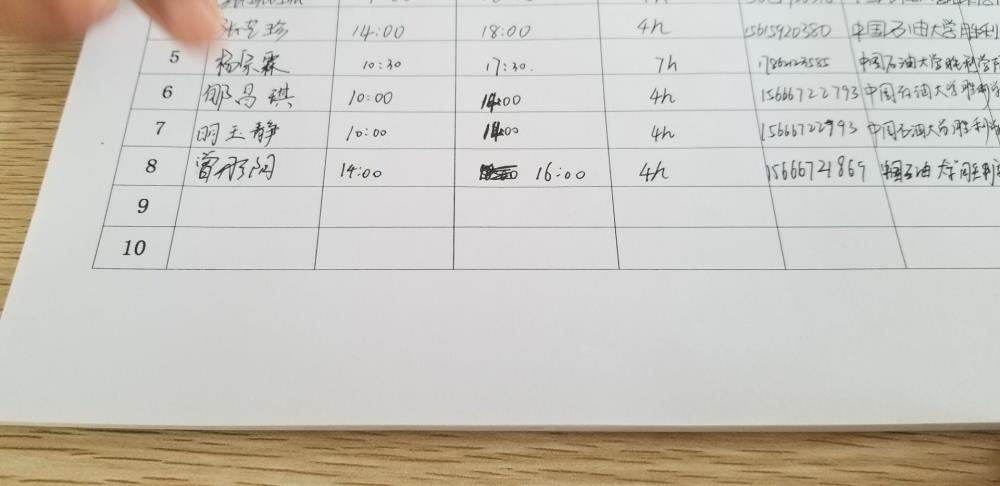 14:00 18:00 4h 15615920380 中国石油大学胜利
5 杨家霖 10:30 17:30. 7h 中国石油大学胜利学院
6 郇昌琪 10:00 14:00 4h 15666722793 中国石油大学胜利学
7 明玉静 10:00 14:00 4h 15666722993 中国石油大学胜利学
8 14:00 16:00 4h 15666721869 中国石油大学
9
10